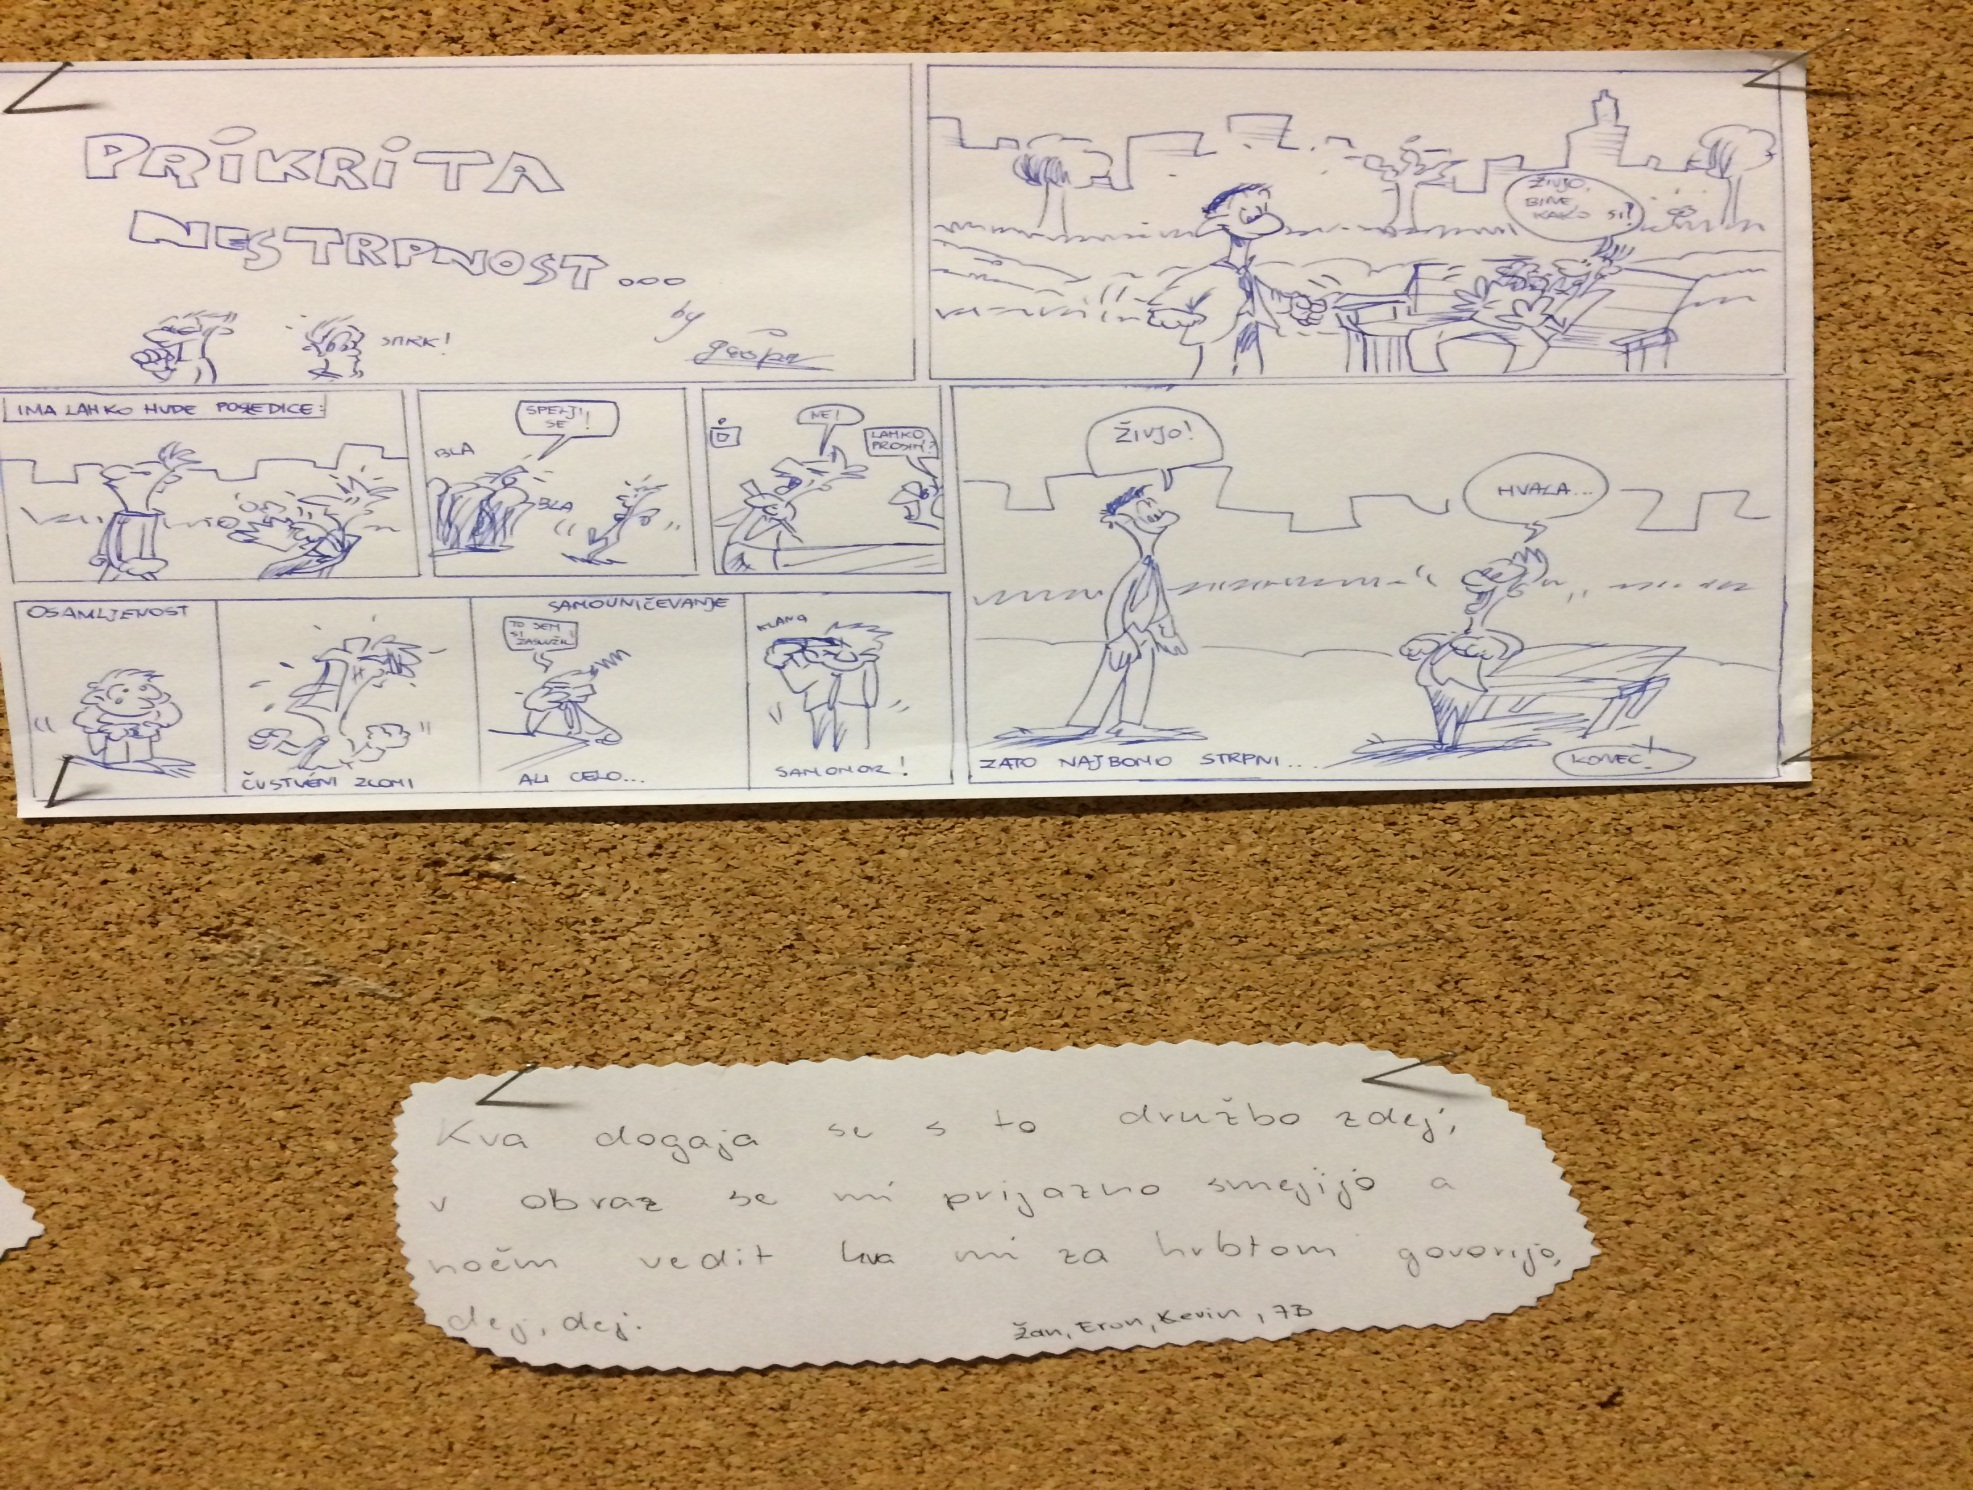 PRIKRITA
NESTRPNOST...
SMRK!
by
ŽIVJO,
BINE
KAKO SI?
IMA LAHKO HUDE POSLEDICE:
BLA
SPELJI
SE!
BLA
NE!
LAHKO
PROSIM?
OSAMLJENOST
ČUSTVENI ZLOMI
SAMOUNIČEVANJE
TO SEM
SI
ZASLUŽIL!
ALI CELO...
KLANG
SAMOMOR!
ŽIVJO!
HVALA...
ZATO NAJ BOMO STRPNI...
KONEC!
Kva dogaja se s to družbo zdej,
v obraz se mi prijazno smejijo a
nočm vedit kva mi za hrbtom govorijo,
dej, dej.
Žan, Eron, Kevin, 7B